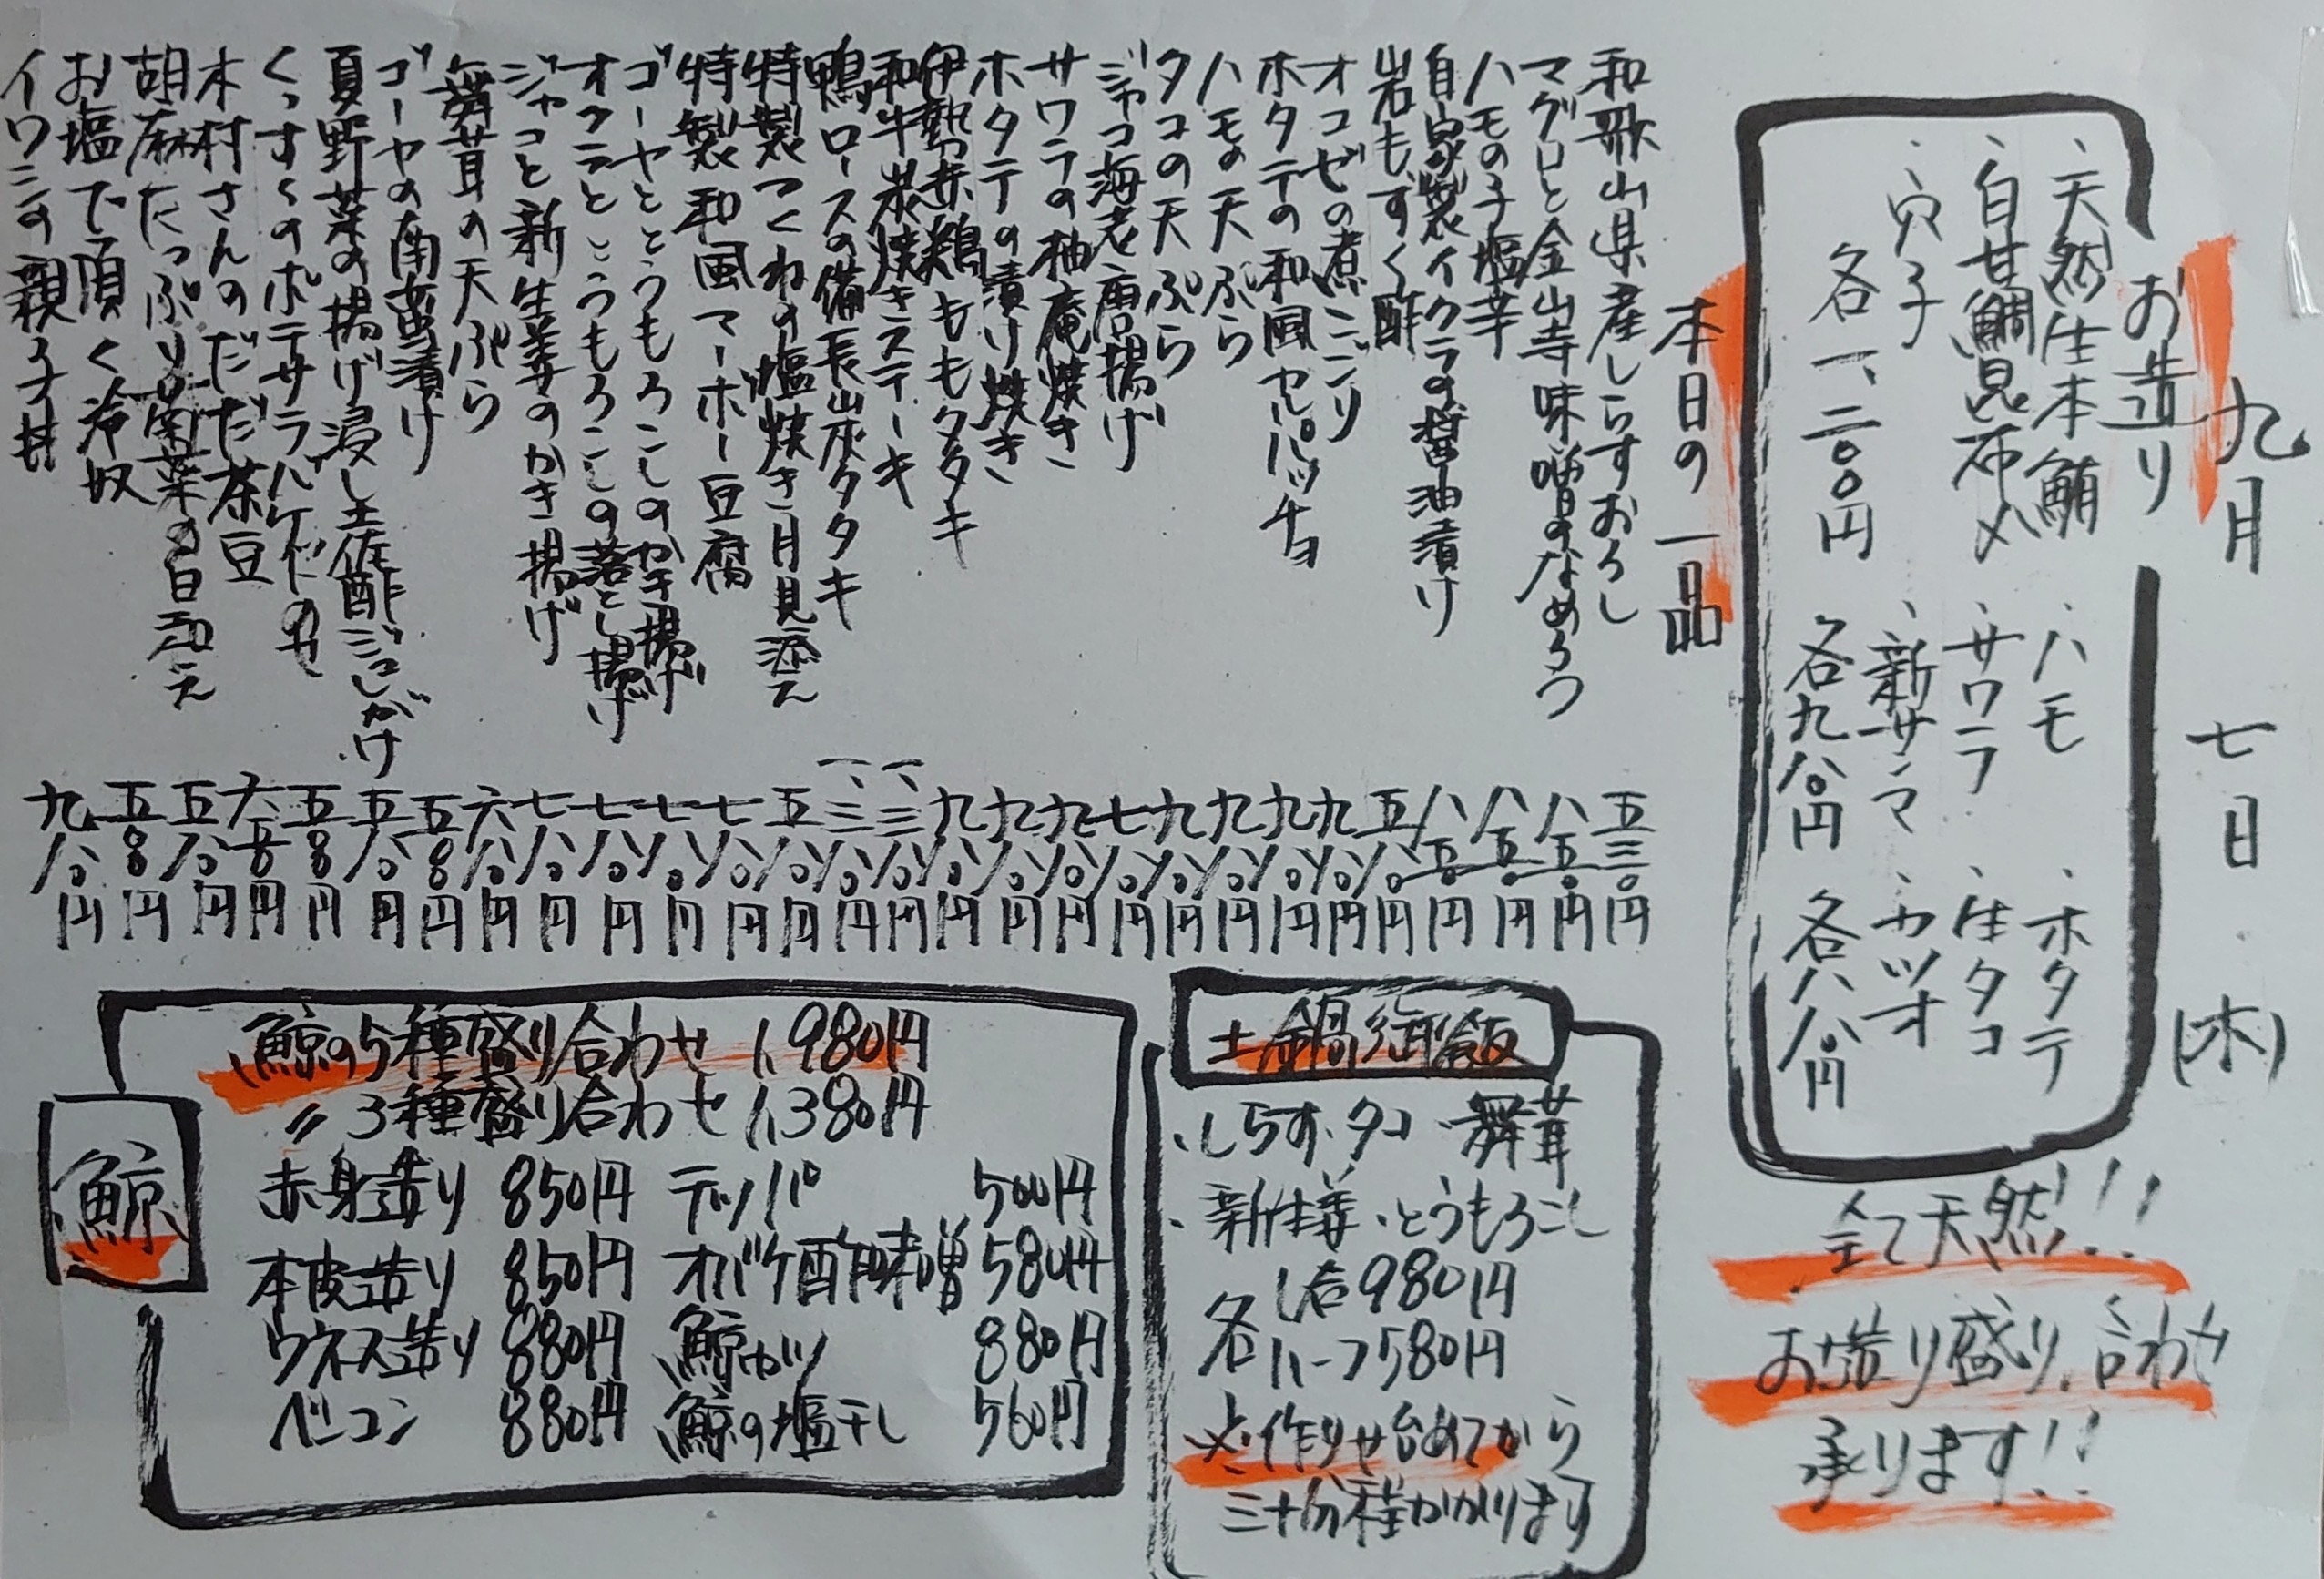 九月 七日 (木)
お造り
、天然生本鮪 、ハモ 、ホタテ
、白甘鯛昆布〆 、サワラ 、生タコ
、穴子 、新サンマ 、カツオ
各一、二〇〇円 各九八〇円 各八八〇円
全て天然!!
お造り盛り合わせ
承ります!!
本日の一品
和歌山県産しらすおろし 五三〇円
マグロと金山寺味噌のなめろう 八五〇円
ハモの子塩辛 八五〇円
自家製イクラの醤油漬け 八五〇円
岩もずく酢 五八〇円
オコゼの煮こごり 九八〇円
ホタテの和風カルパッチョ 九八〇円
ハモの天ぷら 九八〇円
タコの天ぷら 九八〇円
ジャコ海老唐揚げ 七八〇円
サワラの柚庵焼き 九八〇円
ホタテの漬け焼き 九八〇円
伊勢赤鶏ももタタキ 九八〇円
和牛炭焼きステーキ 一、三八〇円
鴨ロースの備長炭タタキ 一、三八〇円
特製つくねの塩焼き月見添え 五八〇円
特製和風マーボー豆腐 七八〇円
ゴーヤととうもろこしのかき揚げ 七八〇円
オクラととうもろこしの落とし揚げ 七八〇円
ジャコと新生姜のかき揚げ 七八〇円
舞茸の天ぷら 六八〇円
ゴーヤの南蛮漬け 五〇〇円
夏野菜の揚げ浸し土佐酢ジュレがけ 五八〇円
ポテサラバケットのせ 五〇〇円
木村さんのだだ茶豆 六五〇円
胡麻たっぷり菊菜の白和え 五八〇円
お塩で頂く冷奴 五〇〇円
イワシの親子丼 九八〇円
土鍋御飯
、しらす、タコ、舞茸
、新生姜、とうもろこし
各1合980円
各ハーフ580円
※作り始めてから
三十分程かかります
鯨
、鯨の5種盛り合わせ 1,980円
〃 3種盛り合わせ 1,380円
赤身造り 850円 テッパ 500円
本皮造り 850円 オバケ酢味噌 580円
ウネス造り 880円 鯨カツ 880円
ベーコン 880円 鯨の塩干し 560円